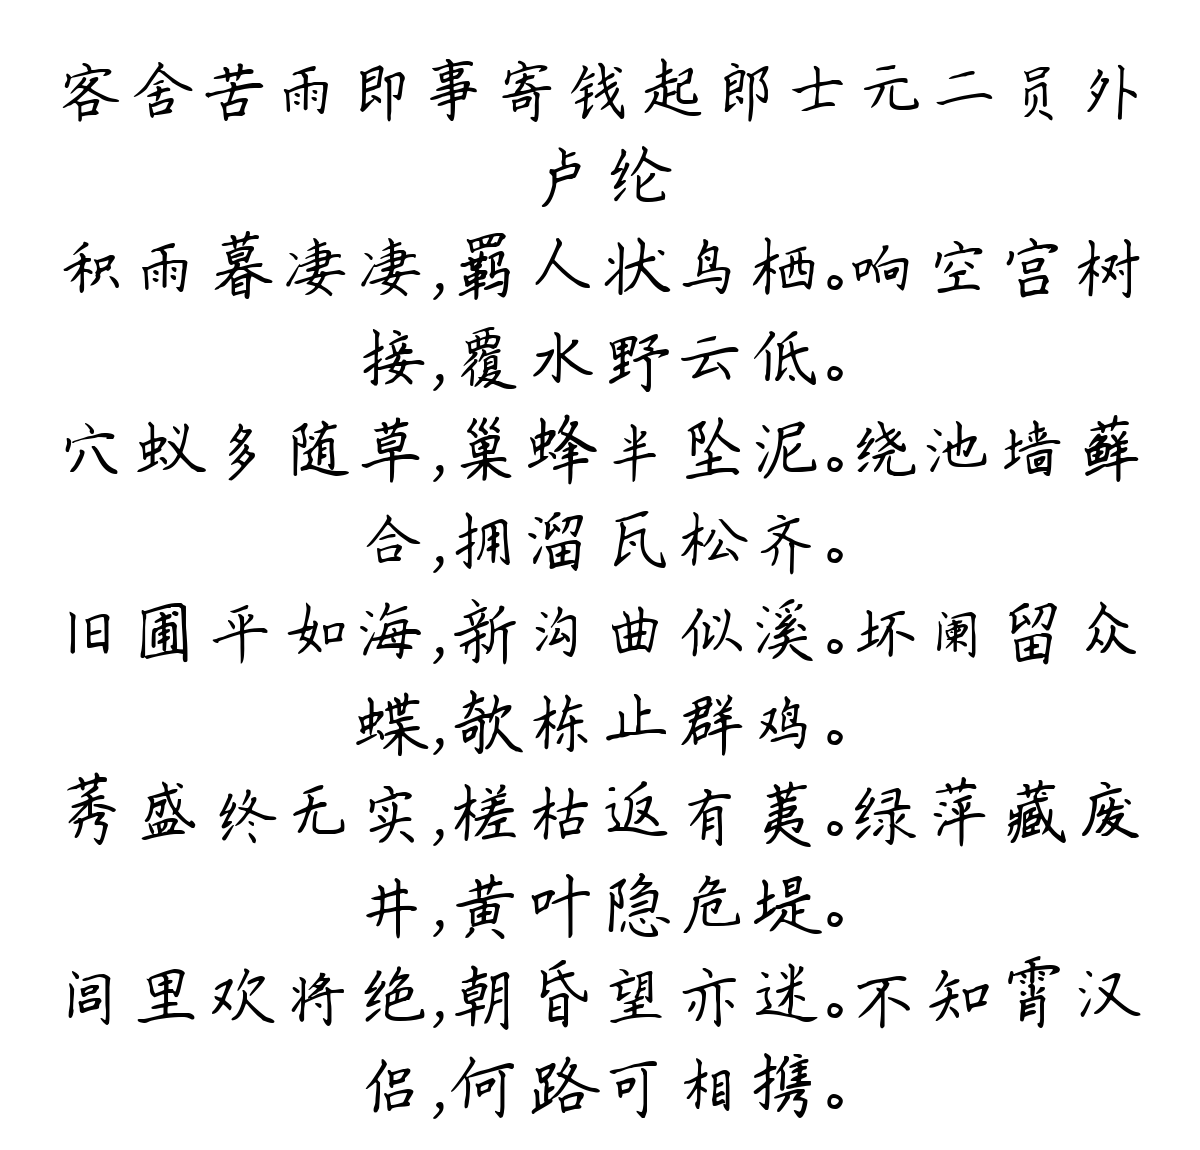 客舍苦雨即事寄钱起郎士元二员外
卢纶
积雨暮凄凄,羁人状鸟栖。响空宫树
接,覆水野云低。
穴蚁多随草,巢蜂半坠泥。绕池墙藓
合,拥溜瓦松齐。
旧圃平如海,新沟曲似溪。坏阑留众
蝶,欹栋止群鸡。
莠盛终无实,槎枯返有荑。绿萍藏废
井,黄叶隐危堤。
闾里欢将绝,朝昏望亦迷。不知霄汉
侣,何路可相携。